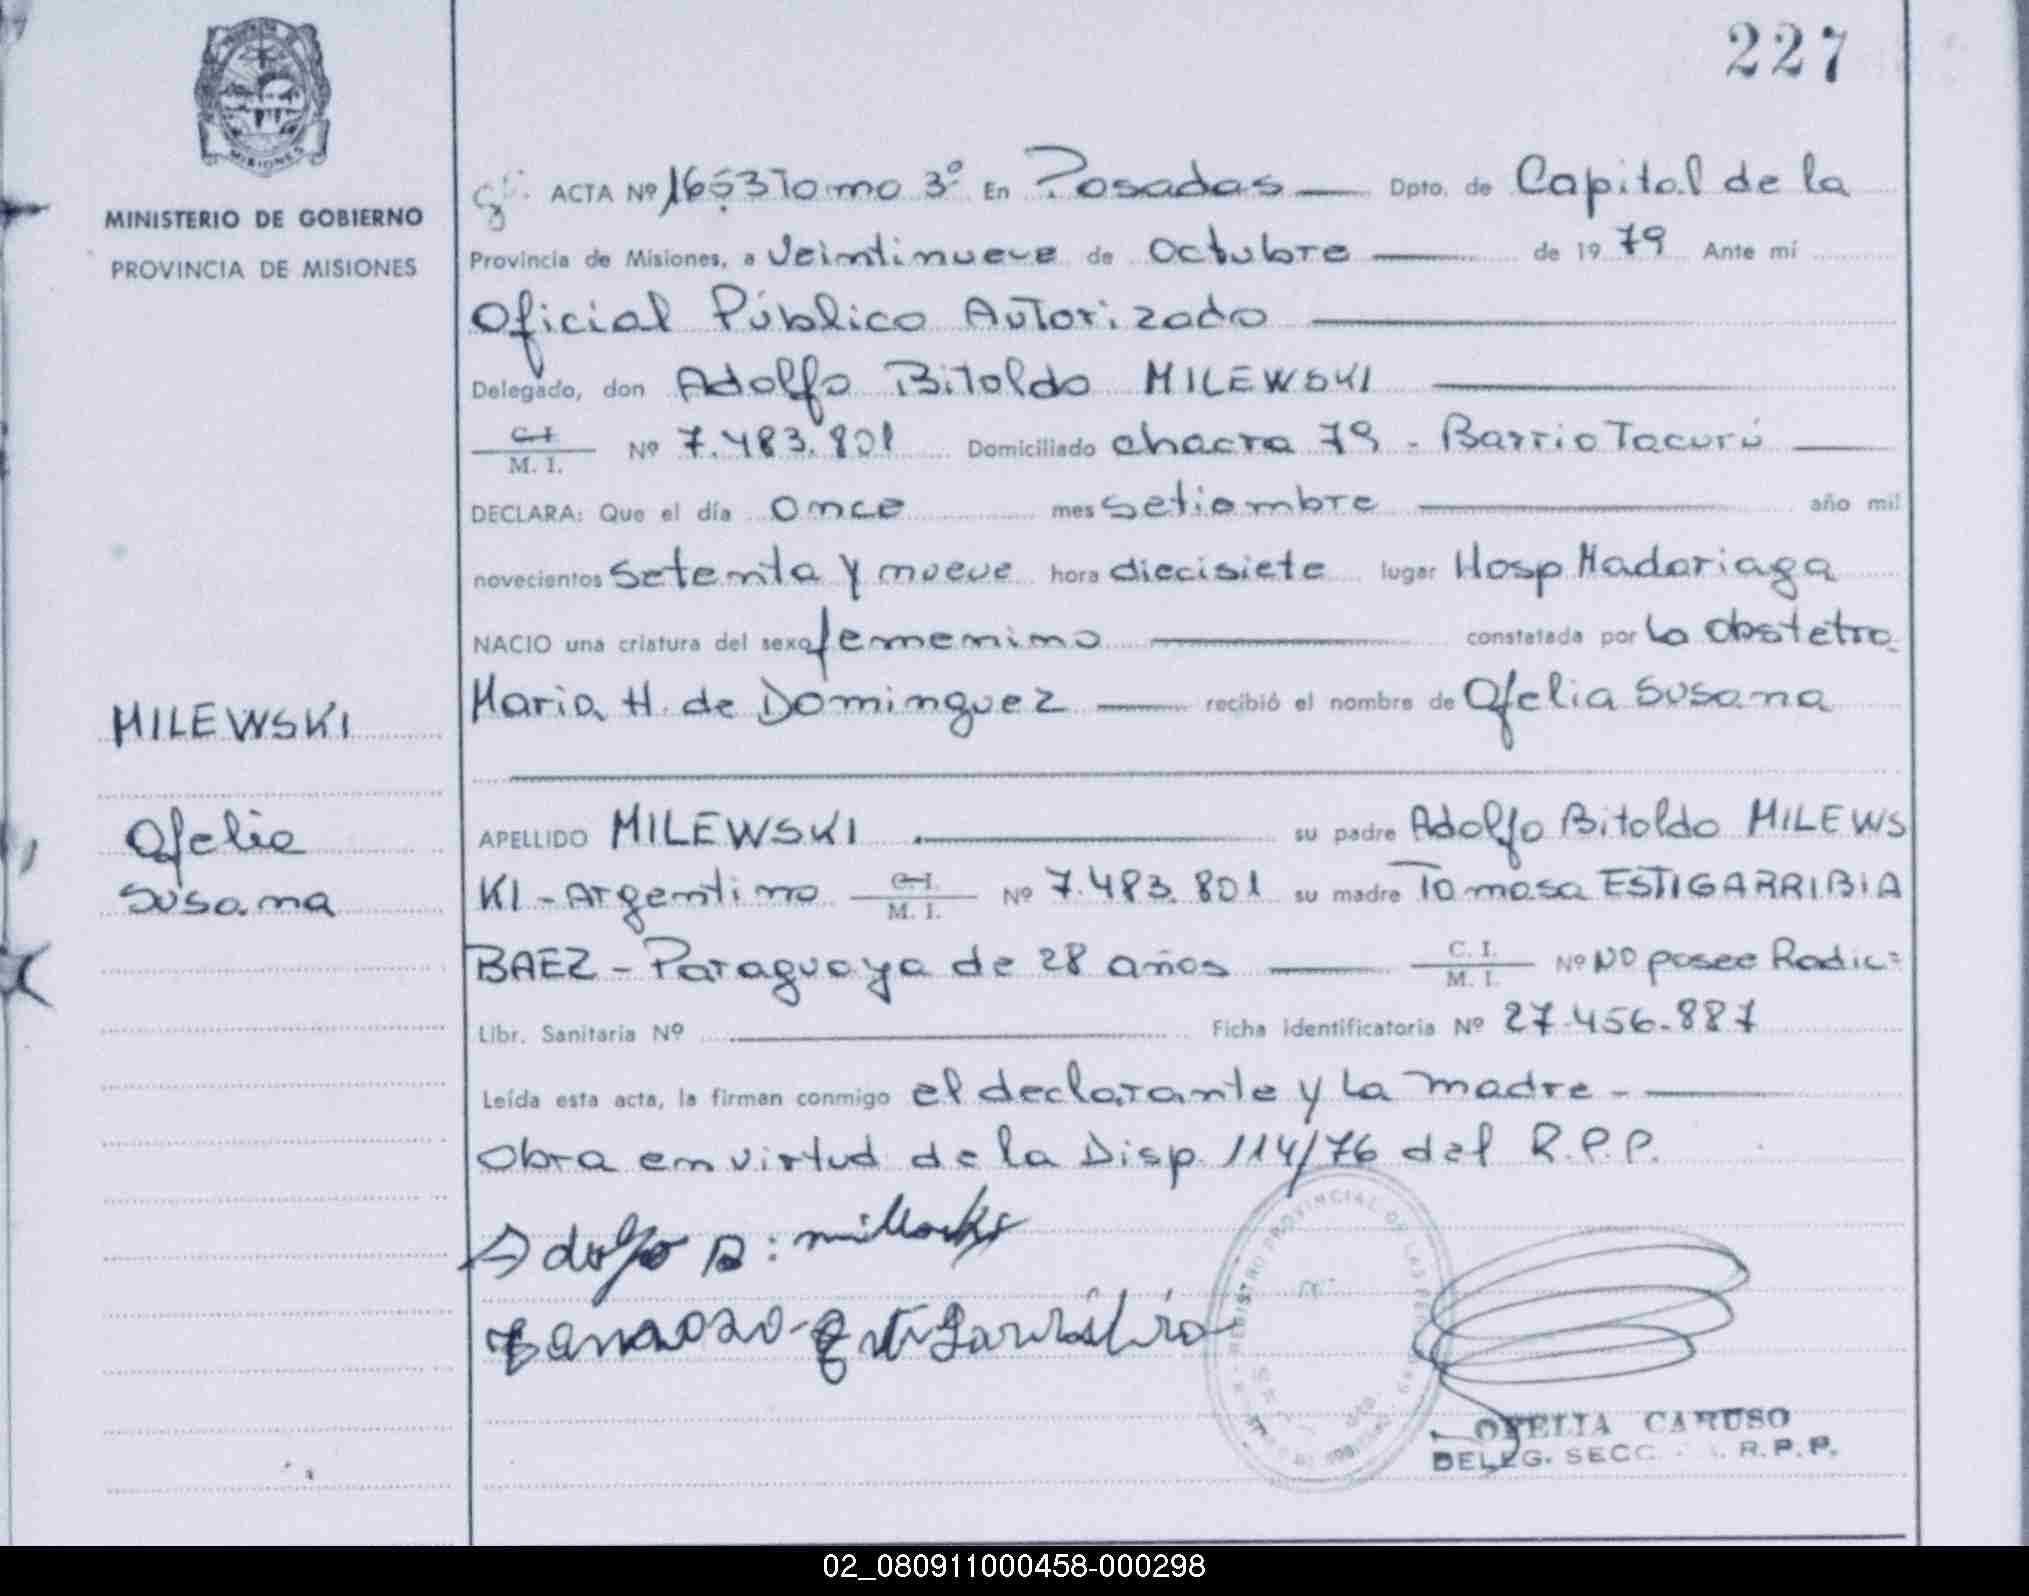 227
MISIONES
MINISTERIO DE GOBIERNO
PROVINCIA DE MISIONES
MILEWSKI
Ofelia
Susana
ACTA Nº 1653 Tomo 3º En Posadas — Dpto. de Capital de la
Provincia de Misiones, a veintinueve de octubre — de 19 79 Ante mí
Oficial Público Autorizado —
Delegado, don Adolfo Bitoldo MILEWSKI —
C.I. / M. I. Nº 7.483.801 Domiciliado chacra 79 - Barrio Tacurú —
DECLARA: Que el día once mes setiembre — año mil
novecientos setenta y nueve hora diecisiete lugar Hosp Madariaga
NACIO una criatura del sexo femenino — constatada por la obstetra
Maria H. de Dominguez — recibió el nombre de Ofelia Susana
APELLIDO MILEWSKI — su padre Adolfo Bitoldo MILEWS
KI - Argentino C.I. / M. I. Nº 7.483.801 su madre Tomasa ESTIGARRIBIA
BAEZ - Paraguaya de 28 años — C. I. / M. I. Nº No posee Radic=
Libr. Sanitaria Nº — Ficha Identificatoria Nº 27.456.887
Leída esta acta, la firman conmigo el declarante y la madre - —
Obra en virtud de la Disp. 114/76 del R.P.P.
Adolfo B:
REGISTRO PROVINCIAL DE LAS
OFELIA CARUSO
DELEG. SECC. R.P.P.
02_080911000458-000298